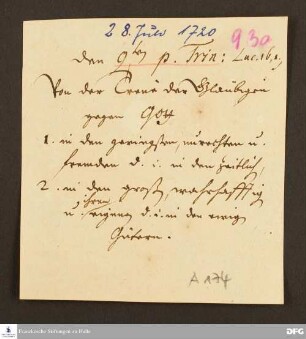 28. Juli 1720
930
den 9. p. Trin: Luc. 16, 1.
Von der Treue der Gläubigen
gegen Gott
1. in den geringsten, unrechten u.
fremden d. i. in den zeitlich,
2. in den groß, wahrhafftig
u. ihren eigenen d. i. in den ewig
Gütern.
A 174
Franckesche Stiftungen zu Halle
DFG